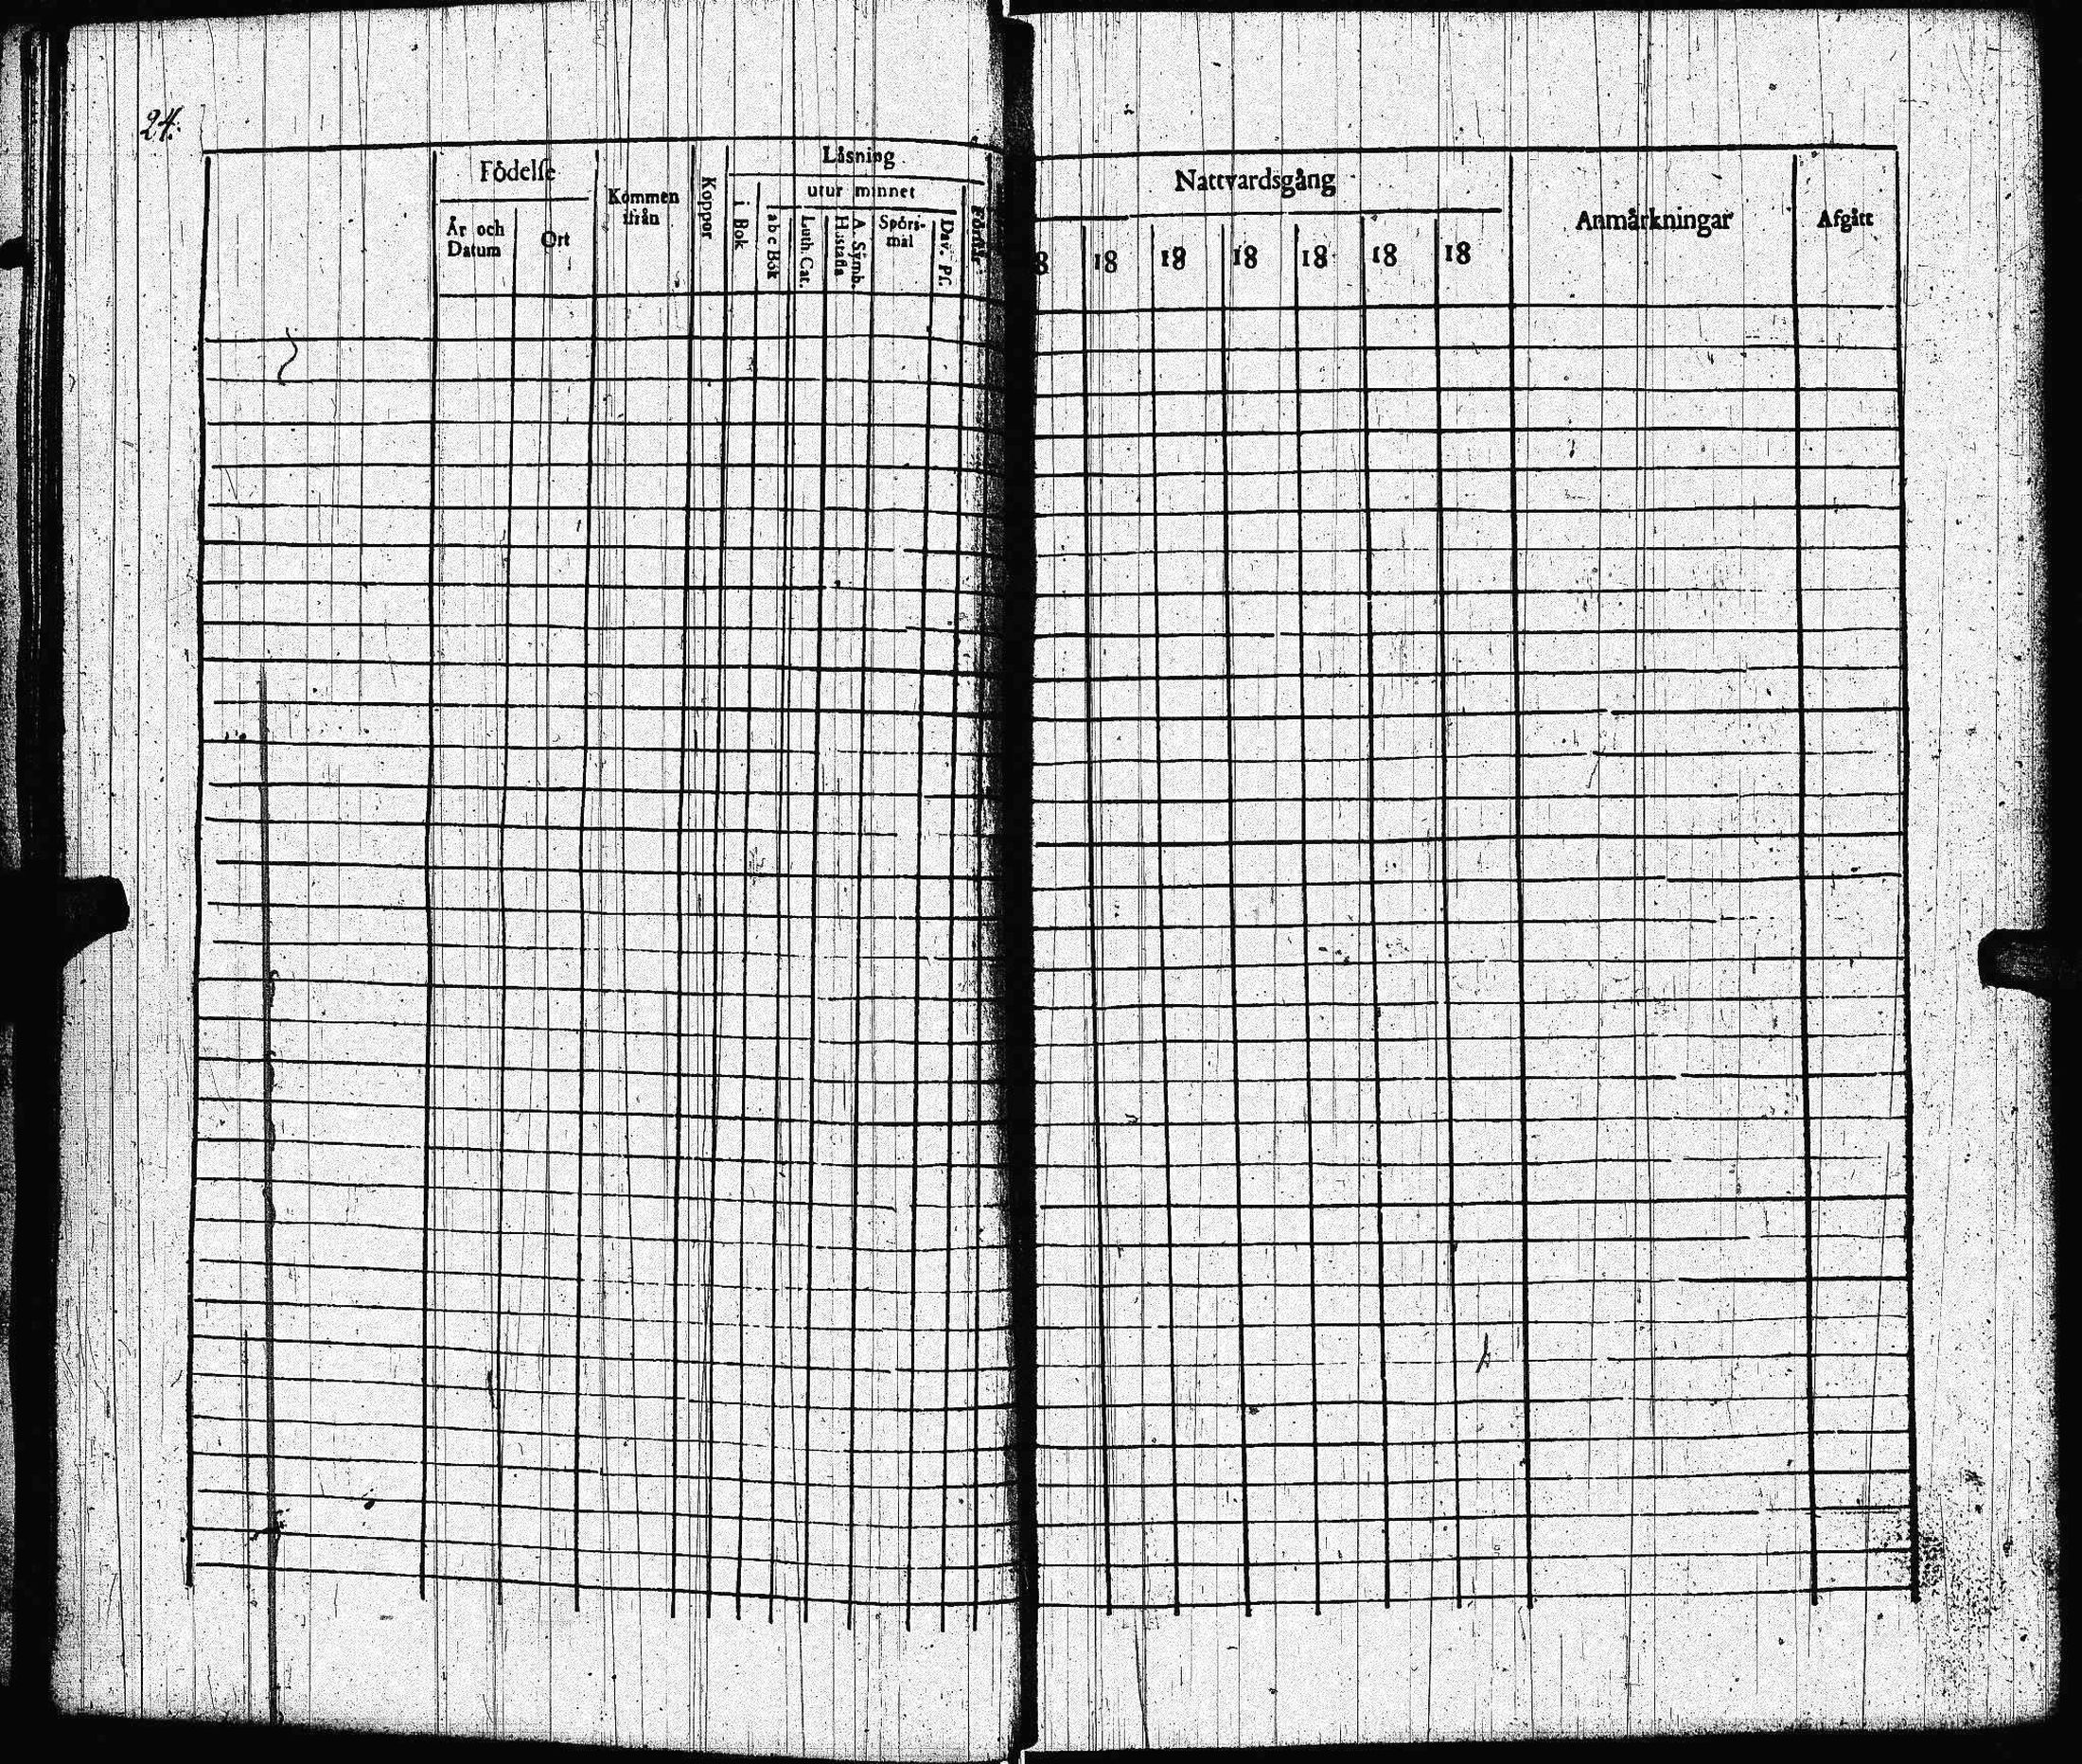 24.
Födelse
År och Datum
Ort
Kommen ifrån
Koppor
Läsning
i Bok
utur minnet
a b c Bok
Luth. Cat.
A. Symb. Hustafla
Spörs-mål
Dav. Ps.
Förstår
Nattvardsgång
8 18 18 18 18 18 18
Anmärkningar
Afgått